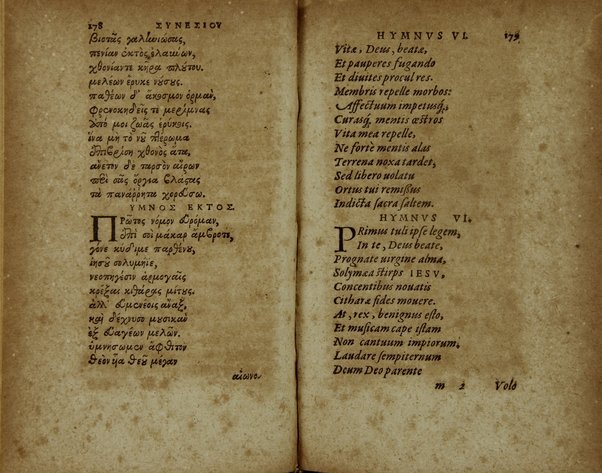 178 ΣΥΝΕΣΙΟΥ
βιοτᾶς γαλανιώσας,
πενίαν ἐκτὸς ἐλαύνων,
χθονίαντε κῆρα πλούτου.
μελέων ἔρυκε νούσους.
παθέων δ' ἄκοσμον ὁρμὰν,
φρενοκηδεῖς τε μερίμνας
ἀπό μοι ζωᾶς ἐρύκοις.
ἵνα μὴ τὸ νοῦ πτέρωμα
ἐπιβρίσῃ χθονὸς ἄτα,
ἄνετον δὲ ταρσὸν αἴρων
περὶ σᾶς ὄργια βλάστας
τὰ πανάρρητα χορεύσω.
ΥΜΝΟΣ ΕΚΤΟΣ.
ΠΡῶτος νόμον εὑρόμαν,
ἐπὶ σοὶ μάκαρ ἄμβροτε,
γόνε κύδιμε παρθένου,
ἰησοῦ σολυμήϊε,
νεοπηγέσιν ἁρμογαῖς
κρέξαι κιθάρας μίτους.
ἀλλ' εὐμενέοις ἄναξ,
καὶ δέχνυσο μουσικὰν
ἐξ εὐαγέων μελῶν.
ὑμνήσωμεν ἄφθιτον
θεὸν ὑῖα θεοῦ μέγαν
αἰωνο-
HYMNVS VI. 179
Vitæ, Deus, beatæ,
Et pauperes fugando
Et diuites procul res.
Membris repelle morbos:
Affectuum impetusq́,
Curasq́, mentis œstros
Vita mea repelle,
Ne fortè mentis alas
Terrena noxa tardet,
Sed libero uolatu
Ortus tui remißus
Indicta sacra saltem.
HYMNVS VI.
PRimus tuli ipse legem,
In te, Deus beate,
Prognate uirgine alma,
Solymæ stirps IESV,
Concentibus nouatis
Citharæ fides mouere.
At, rex, benignus esto,
Et musicam cape istam
Non cantuum impiorum,
Laudare sempiternum
Deum Deo parente
m 2 Volo